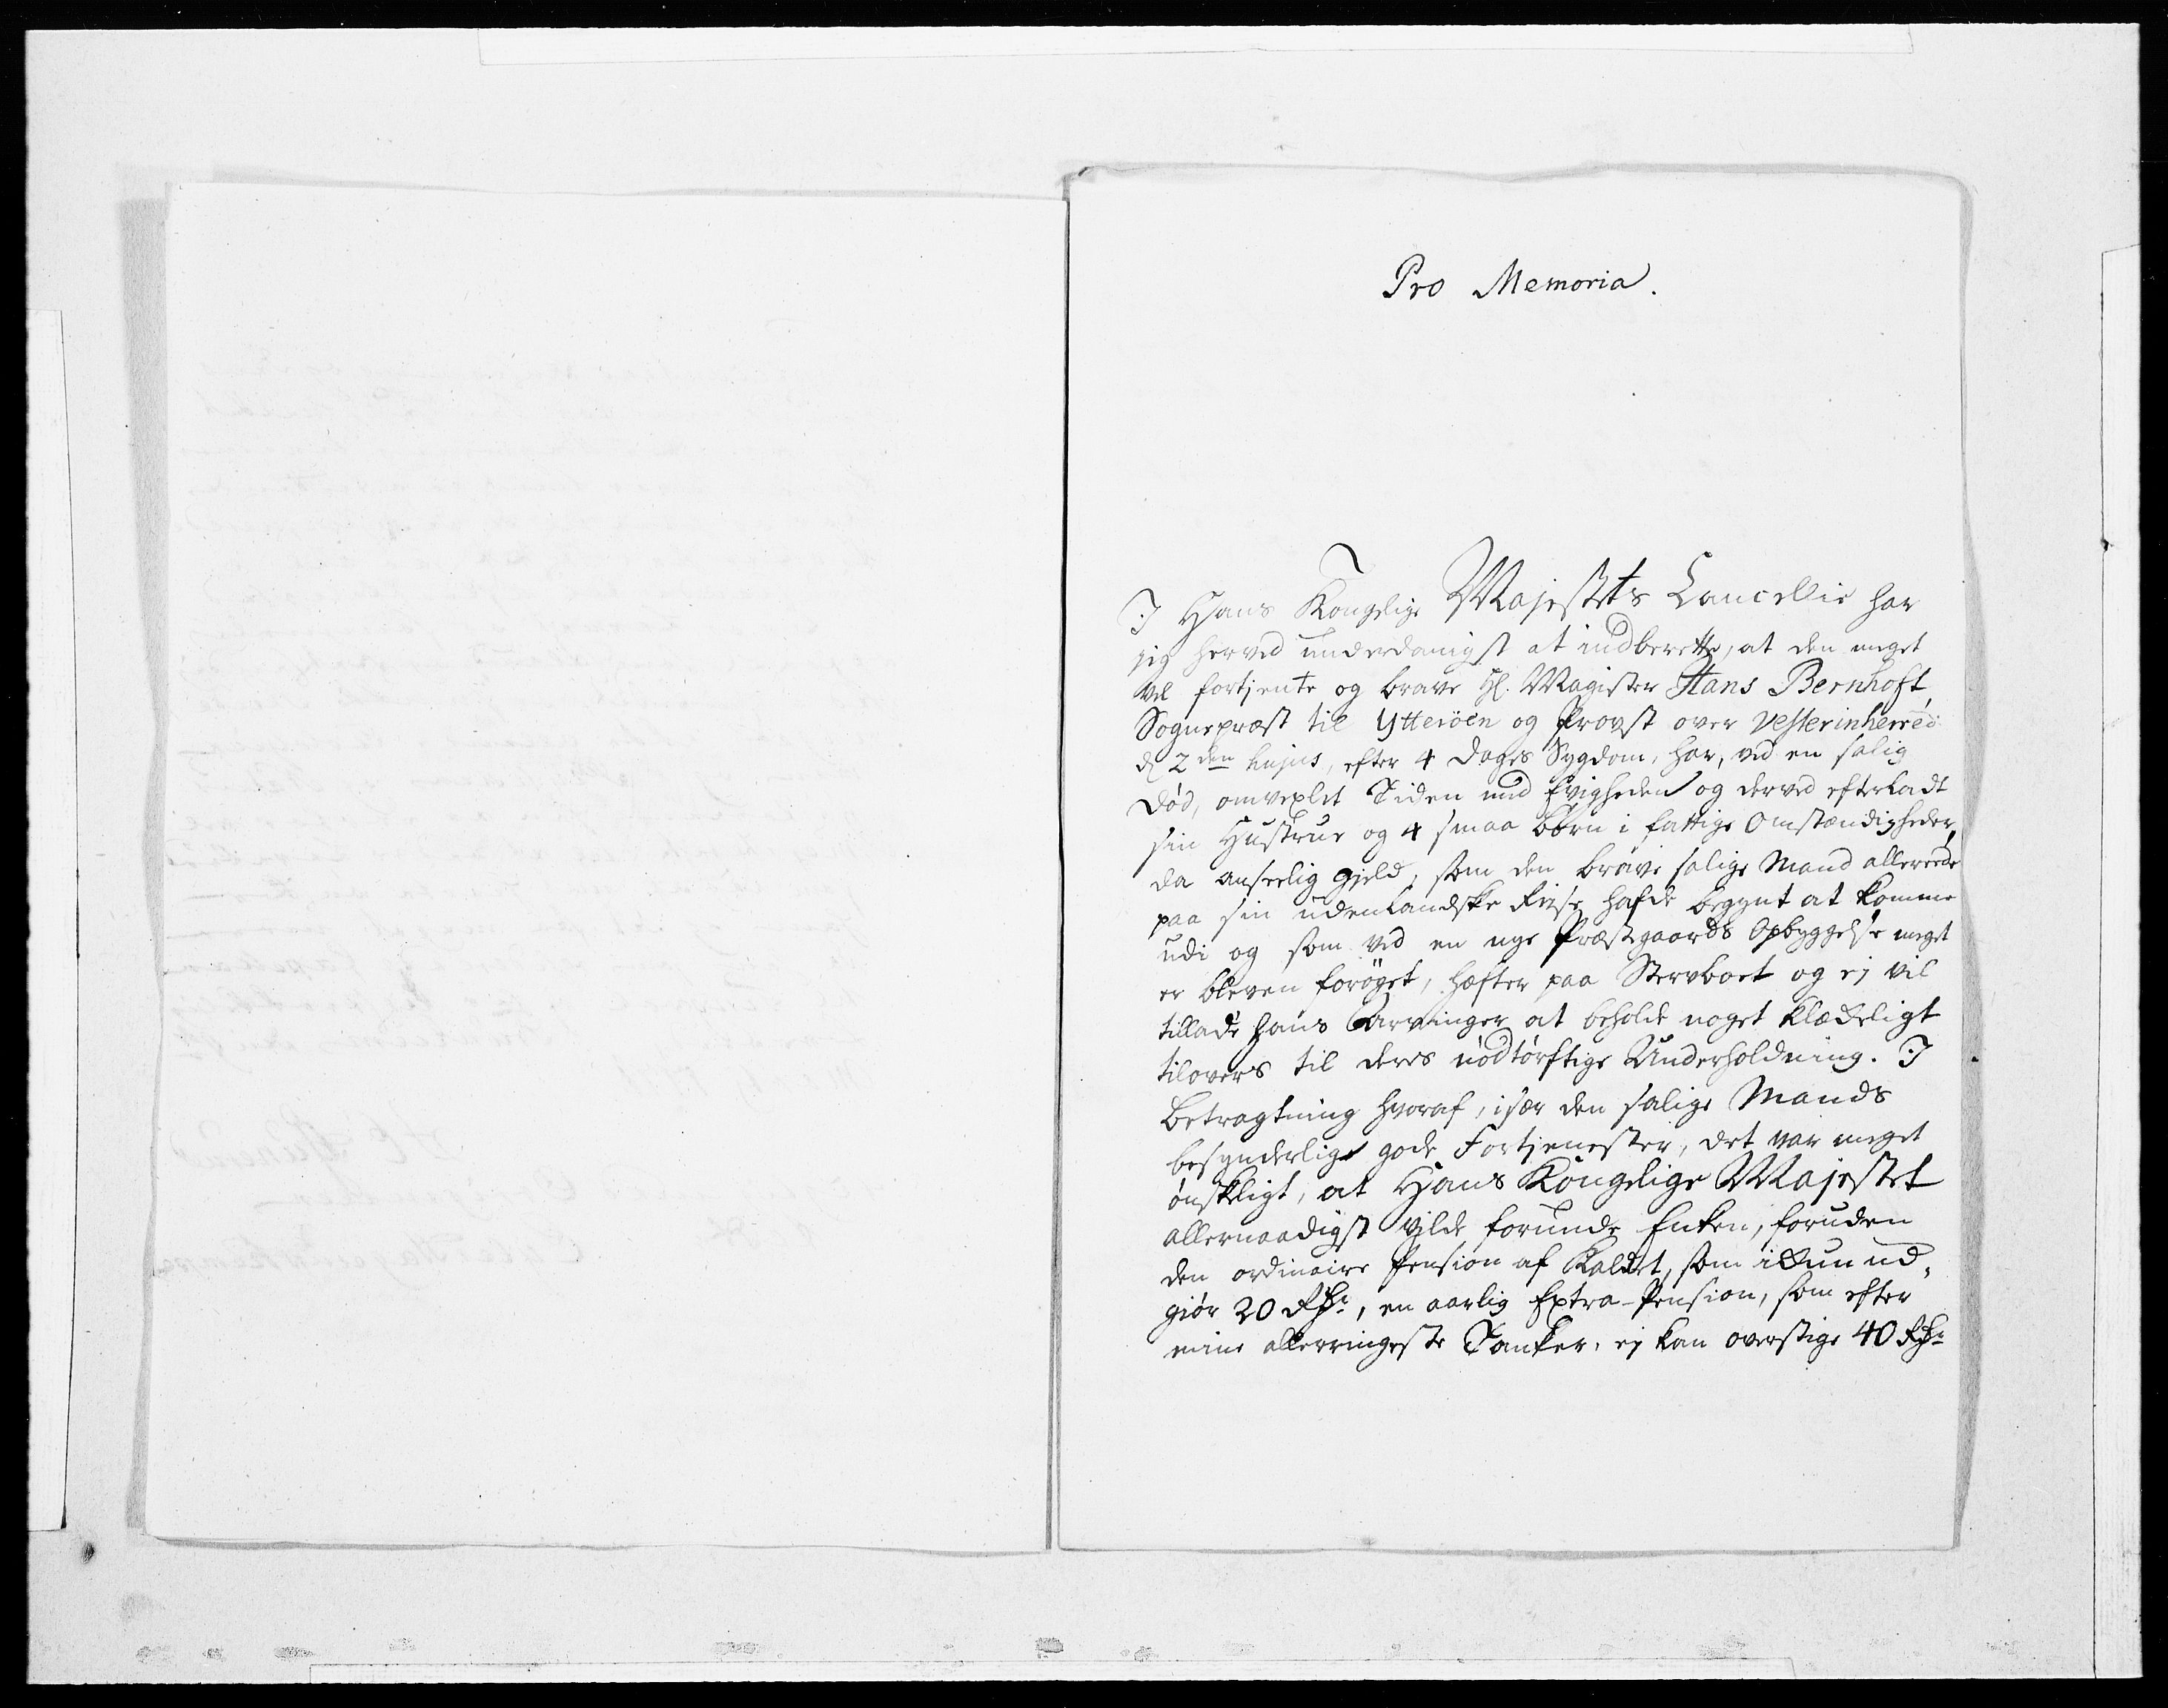 Pro Memoria.
I Hans Kongelige Majestets Cancellie har
jeg herved underdanigst at indberette, at den meget
vel fortiente og brave Hr. Magister Hans Bernhoft,
Sognepræst til Ytteröen og Provst over Vesterinherred
d 2den hujus, efter 4 Dages Sygdom, har, ved en salig
Död, omvexlet Tiden med Evigheden og derved efterladt
sin Hustrue og 4 smaa Börn i fattige Omstændigheder,
da anseelig Gjeld, som den brave salige Mand allereede
paa sin udenlandske Reise hafde begynt at komme
udi og som ved en nye Præstegaards Opbyggelse meget
er bleven foröget, hæfter paa Stervboet og ej vil
tillade hans Arvinger at beholde noget klækkeligt
tilovers til deres nödtörftige Underholdning. I
Betragtning hvoraf, især den salige Mands
besynderlige gode Fortienester, det var meget
önskeligt, at Hans Kongelige Majestet
allernaadigst vilde forunde Enken, foruden
den ordinaire Pension af Kaldet, som ikkun ud-
giör 20 Rdr, en aarlig Extra-Pension, som efter
mine allerringeste Tanker, ej kan overstige 40 Rdr